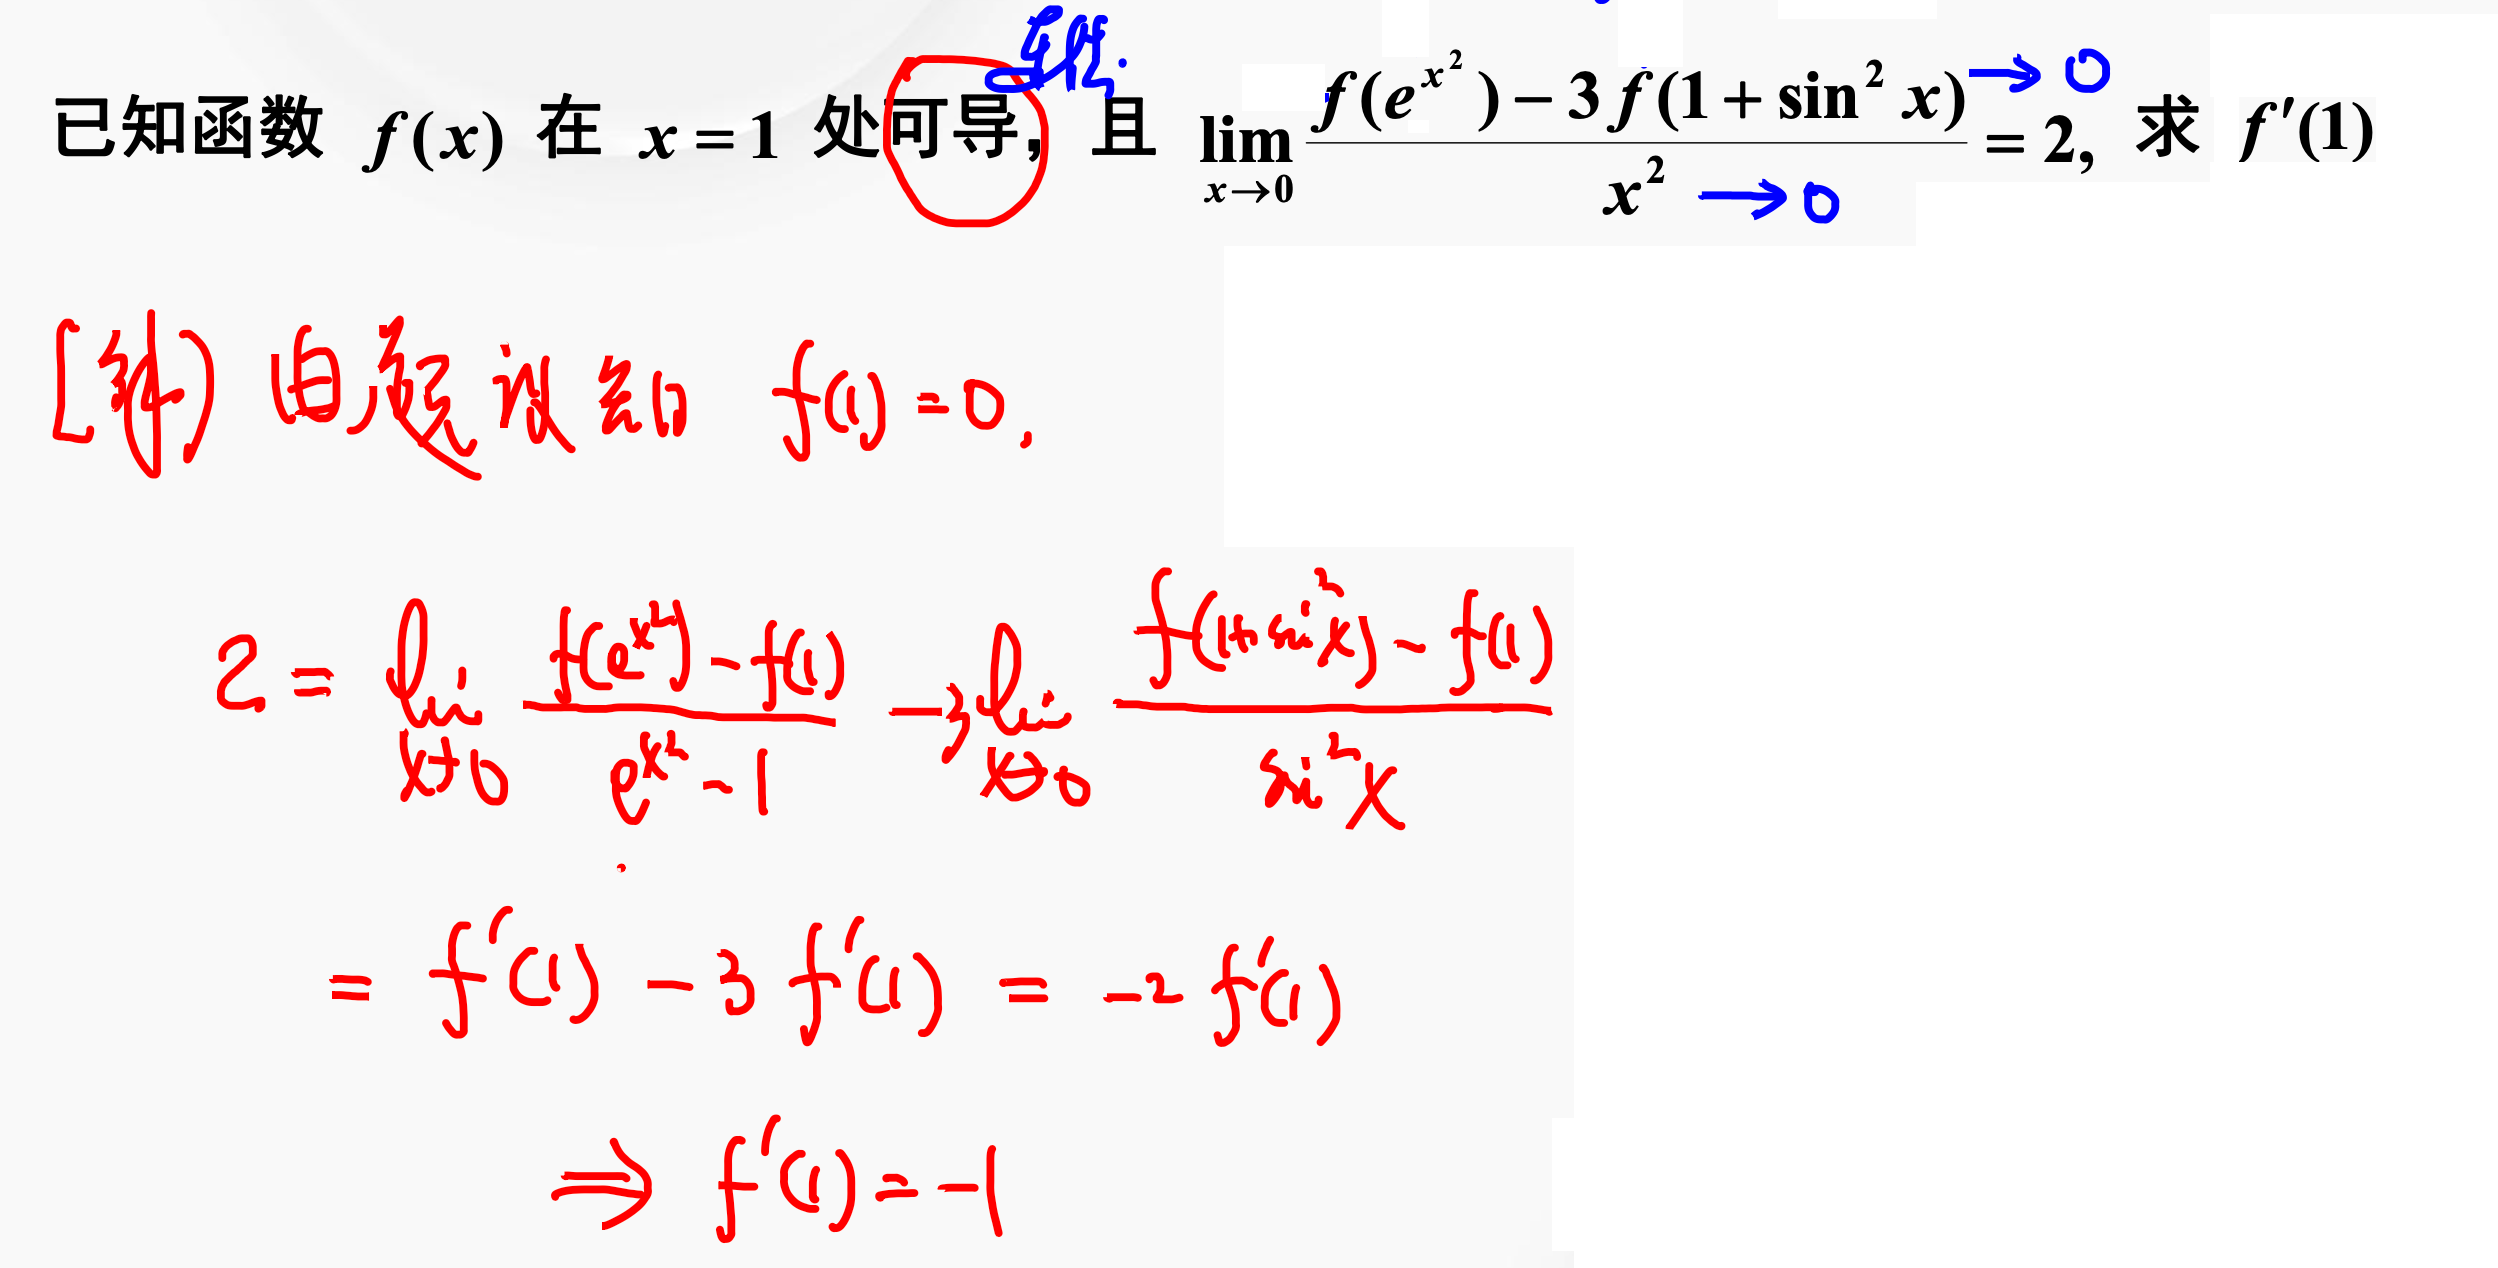 已知函数 f(x) 在 x=1 处可导, 且 lim_{x→0} (f(e^{x^2}) − 3f(1+sin^2 x))/x^2 = 2, 求 f′(1)
→ 0
→ 0
[解] 由题意知 f(1)=0,
2 = lim_{x→0} (f(e^{x^2}) − f(1))/(e^{x^2} − 1) − 3 lim_{x→0} (f(1+sin^2 x) − f(1))/(sin^2 x)
= f′(1) − 3f′(1) = −2f′(1)
⇒ f′(1) = −1